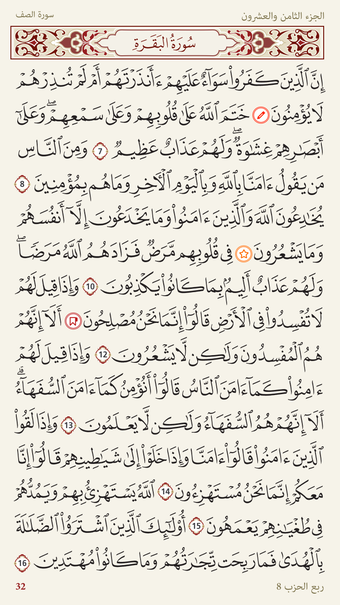 الجزء الثامن والعشرون
سورة الصف
سُورَةُ البَقَرَةِ
إِنَّ ٱلَّذِينَ كَفَرُوا۟ سَوَآءٌ عَلَيْهِمْ ءَأَنذَرْتَهُمْ أَمْ لَمْ تُنذِرْهُمْ
لَا يُؤْمِنُونَ خَتَمَ ٱللَّهُ عَلَىٰ قُلُوبِهِمْ وَعَلَىٰ سَمْعِهِمْ ۖ وَعَلَىٰٓ
أَبْصَٰرِهِمْ غِشَٰوَةٌ ۖ وَلَهُمْ عَذَابٌ عَظِيمٌ 7 وَمِنَ ٱلنَّاسِ
مَن يَقُولُ ءَامَنَّا بِٱللَّهِ وَبِٱلْيَوْمِ ٱلْءَاخِرِ وَمَا هُم بِمُؤْمِنِينَ 8
يُخَٰدِعُونَ ٱللَّهَ وَٱلَّذِينَ ءَامَنُوا۟ وَمَا يَخْدَعُونَ إِلَّآ أَنفُسَهُمْ
وَمَا يَشْعُرُونَ فِى قُلُوبِهِم مَّرَضٌ فَزَادَهُمُ ٱللَّهُ مَرَضًا ۖ
وَلَهُمْ عَذَابٌ أَلِيمٌۢ بِمَا كَانُوا۟ يَكْذِبُونَ 10 وَإِذَا قِيلَ لَهُمْ
لَا تُفْسِدُوا۟ فِى ٱلْأَرْضِ قَالُوٓا۟ إِنَّمَا نَحْنُ مُصْلِحُونَ أَلَآ إِنَّهُمْ
هُمُ ٱلْمُفْسِدُونَ وَلَٰكِن لَّا يَشْعُرُونَ 12 وَإِذَا قِيلَ لَهُمْ
ءَامِنُوا۟ كَمَآ ءَامَنَ ٱلنَّاسُ قَالُوٓا۟ أَنُؤْمِنُ كَمَآ ءَامَنَ ٱلسُّفَهَآءُ ۗ
أَلَآ إِنَّهُمْ هُمُ ٱلسُّفَهَآءُ وَلَٰكِن لَّا يَعْلَمُونَ 13 وَإِذَا لَقُوا۟
ٱلَّذِينَ ءَامَنُوا۟ قَالُوٓا۟ ءَامَنَّا وَإِذَا خَلَوْا۟ إِلَىٰ شَيَٰطِينِهِمْ قَالُوٓا۟ إِنَّا
مَعَكُمْ إِنَّمَا نَحْنُ مُسْتَهْزِءُونَ 14 ٱللَّهُ يَسْتَهْزِئُ بِهِمْ وَيَمُدُّهُمْ
فِى طُغْيَٰنِهِمْ يَعْمَهُونَ 15 أُو۟لَٰٓئِكَ ٱلَّذِينَ ٱشْتَرَوُا۟ ٱلضَّلَٰلَةَ
بِٱلْهُدَىٰ فَمَا رَبِحَت تِّجَٰرَتُهُمْ وَمَا كَانُوا۟ مُهْتَدِينَ 16
ربع الحزب 8
32